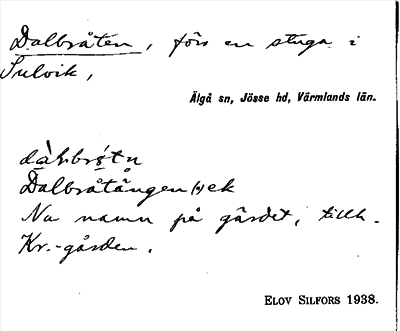 Dalbråten, förr en stuga i
Sulvik,
Älgå sn, Jösse hd, Värmlands län.
Dalbråtången (s) ek
Nu namn på gärdet, tillh.
Kr.-gården.
ELOV SILFORS 1938.